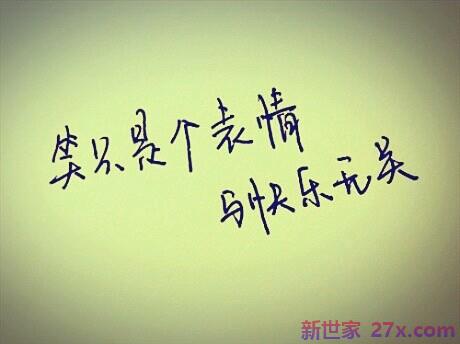 笑只是个表情
与快乐无关
新世家 27x.com